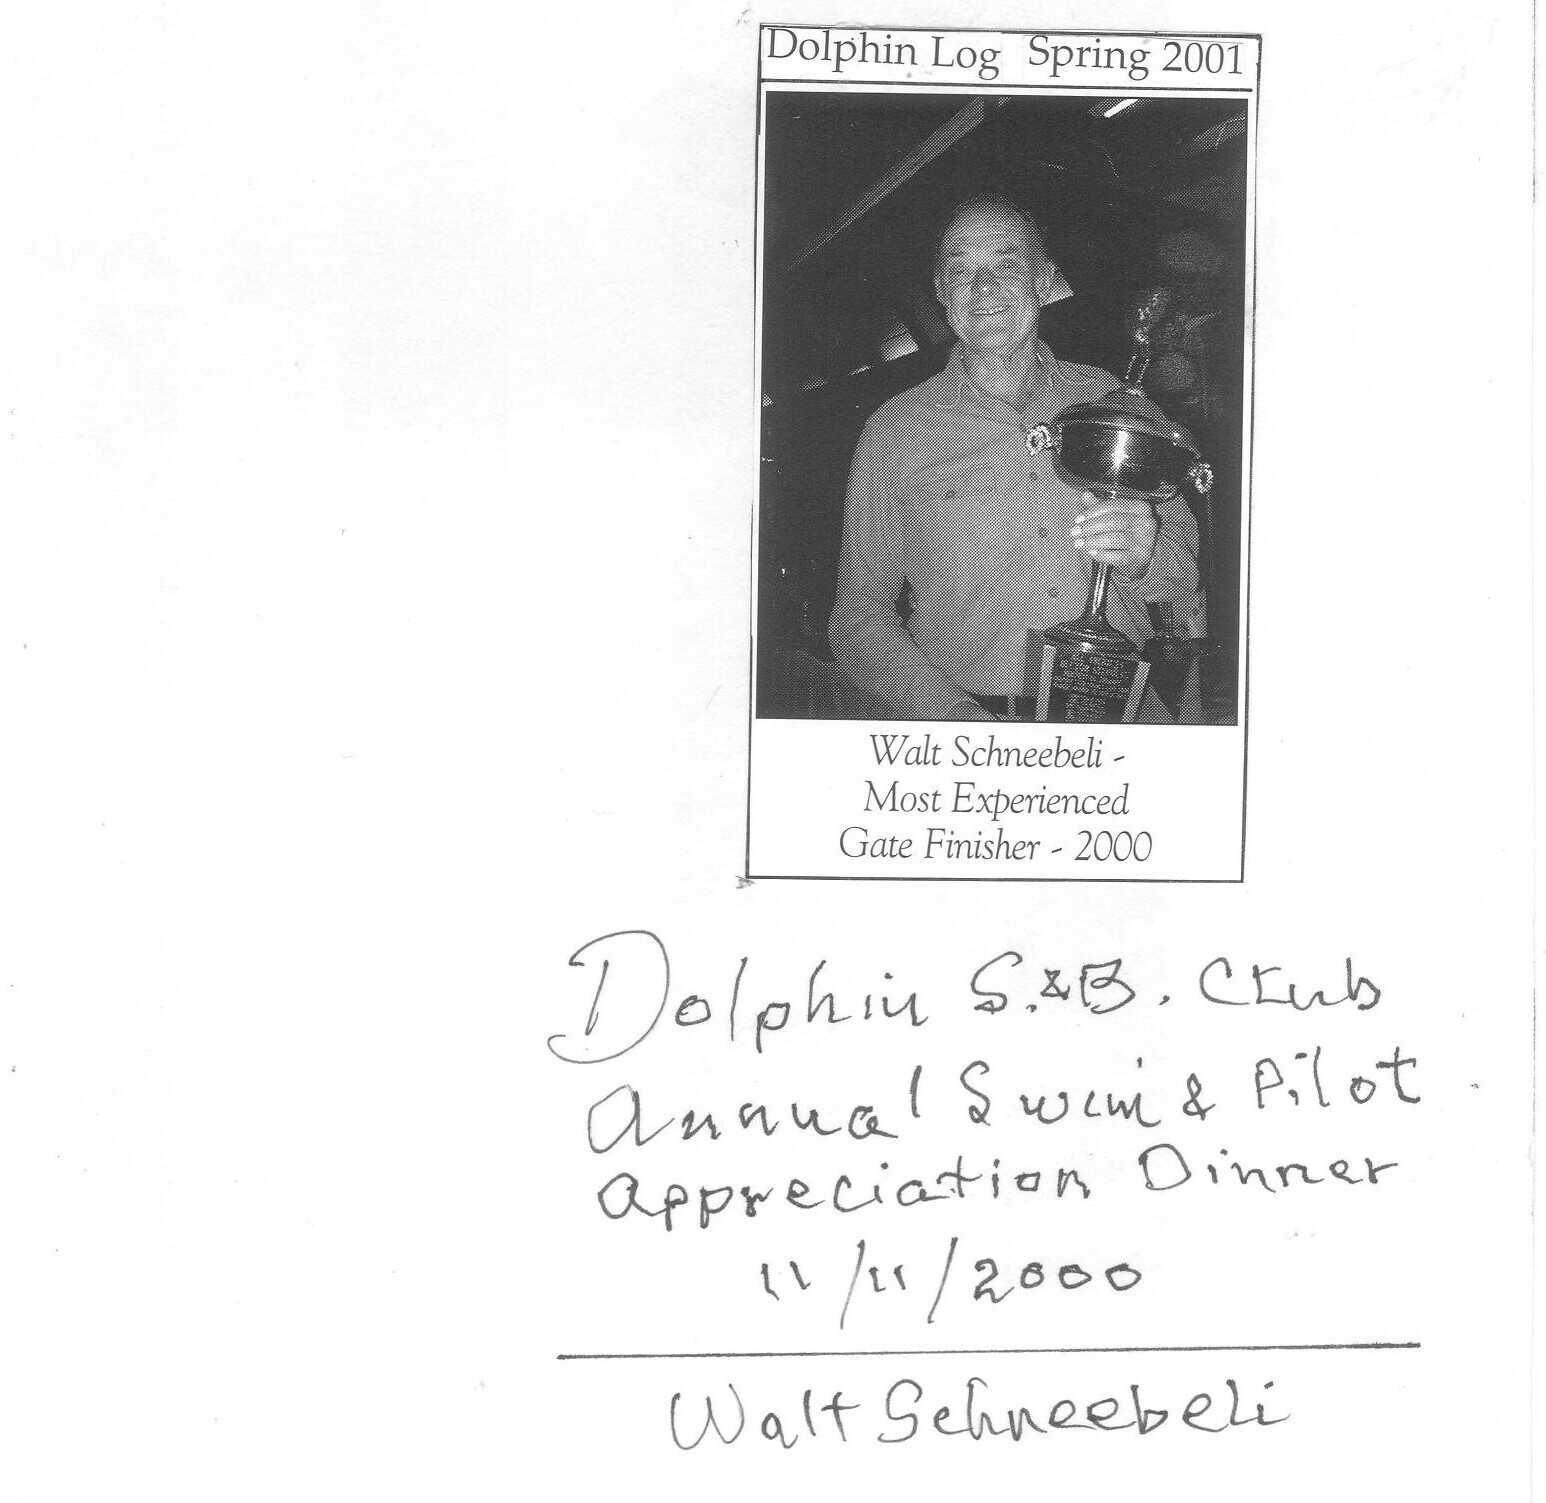 Dolphin Log Spring 2001
Walt Schneebeli -
Most Experienced
Gate Finisher - 2000
Dolphin S.&B. Club
Annual Swim & Pilot
Appreciation Dinner
11/11/2000
Walt Schneebeli